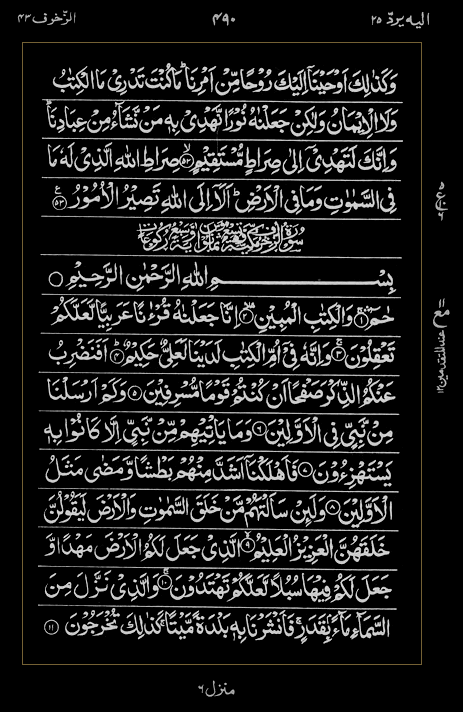 الیه یردّ ۲۵
۴۹۰
الزّخرف ۴۳
وَكَذٰلِكَ اَوْحَيْنَاۤ اِلَيْكَ رُوْحًا مِّنْ اَمْرِنَا ؕ مَا كُنْتَ تَدْرِيْ مَا الْكِتٰبُ
وَلَا الْاِيْمَانُ وَلٰكِنْ جَعَلْنٰهُ نُوْرًا نَّهْدِيْ بِهٖ مَنْ نَّشَآءُ مِنْ عِبَادِنَا ؕ
وَاِنَّكَ لَتَهْدِيْۤ اِلٰى صِرَاطٍ مُّسْتَقِيْمٍ ۙ﴿۵۲﴾ صِرَاطِ اللّٰهِ الَّذِيْ لَهٗ مَا
فِي السَّمٰوٰتِ وَمَا فِي الْاَرْضِ ؕ اَلَاۤ اِلَى اللّٰهِ تَصِيْرُ الْاُمُوْرُ ﴿۵۳﴾ ع
بِسْمِ اللّٰهِ الرَّحْمٰنِ الرَّحِيْمِ
حٰمٓ ۚ﴿۱﴾ وَالْكِتٰبِ الْمُبِيْنِ ۙ﴿۲﴾ اِنَّا جَعَلْنٰهُ قُرْءٰنًا عَرَبِيًّا لَّعَلَّكُمْ
تَعْقِلُوْنَ ۚ﴿۳﴾ وَاِنَّهٗ فِيْۤ اُمِّ الْكِتٰبِ لَدَيْنَا لَعَلِيٌّ حَكِيْمٌ ؕ﴿۴﴾ اَفَنَضْرِبُ
عَنْكُمُ الذِّكْرَ صَفْحًا اَنْ كُنْتُمْ قَوْمًا مُّسْرِفِيْنَ ﴿۵﴾ وَكَمْ اَرْسَلْنَا
مِنْ نَّبِيٍّ فِي الْاَوَّلِيْنَ ﴿۶﴾ وَمَا يَاْتِيْهِمْ مِّنْ نَّبِيٍّ اِلَّا كَانُوْا بِهٖ
يَسْتَهْزِءُوْنَ ﴿۷﴾ فَاَهْلَكْنَاۤ اَشَدَّ مِنْهُمْ بَطْشًا وَّمَضٰى مَثَلُ
الْاَوَّلِيْنَ ﴿۸﴾ وَلَئِنْ سَاَلْتَهُمْ مَّنْ خَلَقَ السَّمٰوٰتِ وَالْاَرْضَ لَيَقُوْلُنَّ
خَلَقَهُنَّ الْعَزِيْزُ الْعَلِيْمُ ۙ﴿۹﴾ الَّذِيْ جَعَلَ لَكُمُ الْاَرْضَ مَهْدًا وَّ
جَعَلَ لَكُمْ فِيْهَا سُبُلًا لَّعَلَّكُمْ تَهْتَدُوْنَ ۚ﴿۱۰﴾ وَالَّذِيْ نَزَّلَ مِنَ
السَّمَآءِ مَآءًۢ بِقَدَرٍ ۚ فَاَنْشَرْنَا بِهٖ بَلْدَةً مَّيْتًا ۚ كَذٰلِكَ تُخْرَجُوْنَ ﴿۱۱﴾
منزل ۶